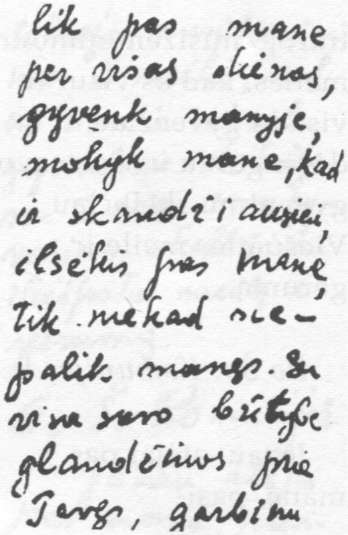 lik pas mane
per visas dienas,
gyvenk manyje,
mokyk mane, kad
ir skaudžiausiai,
ilsėkis pas mane,
tik nekad ne-
palik manęs. Su
visa savo būtybe
glaudžiuos prie
Tavęs, garbinu